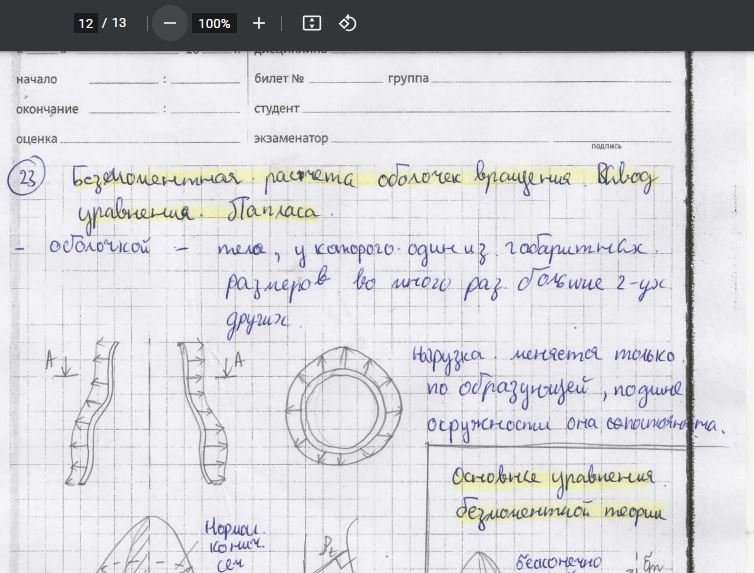 12 / 13 100%
" " 20 г. дисциплина
начало : билет № группа
окончание : студент
оценка экзаменатор
подпись
23 Безмоментная расчета оболочек вращения. Вывод
уравнения Лапласа.
- оболочкой - тело, у которого один из габаритных
размеров во много раз больше 2-ух
других
А А
Нагрузка меняется только
по образующей, по длине
окружности она
Основные уравнения
безмоментной теории
Нормал.
конич.
сеч
бесконечно